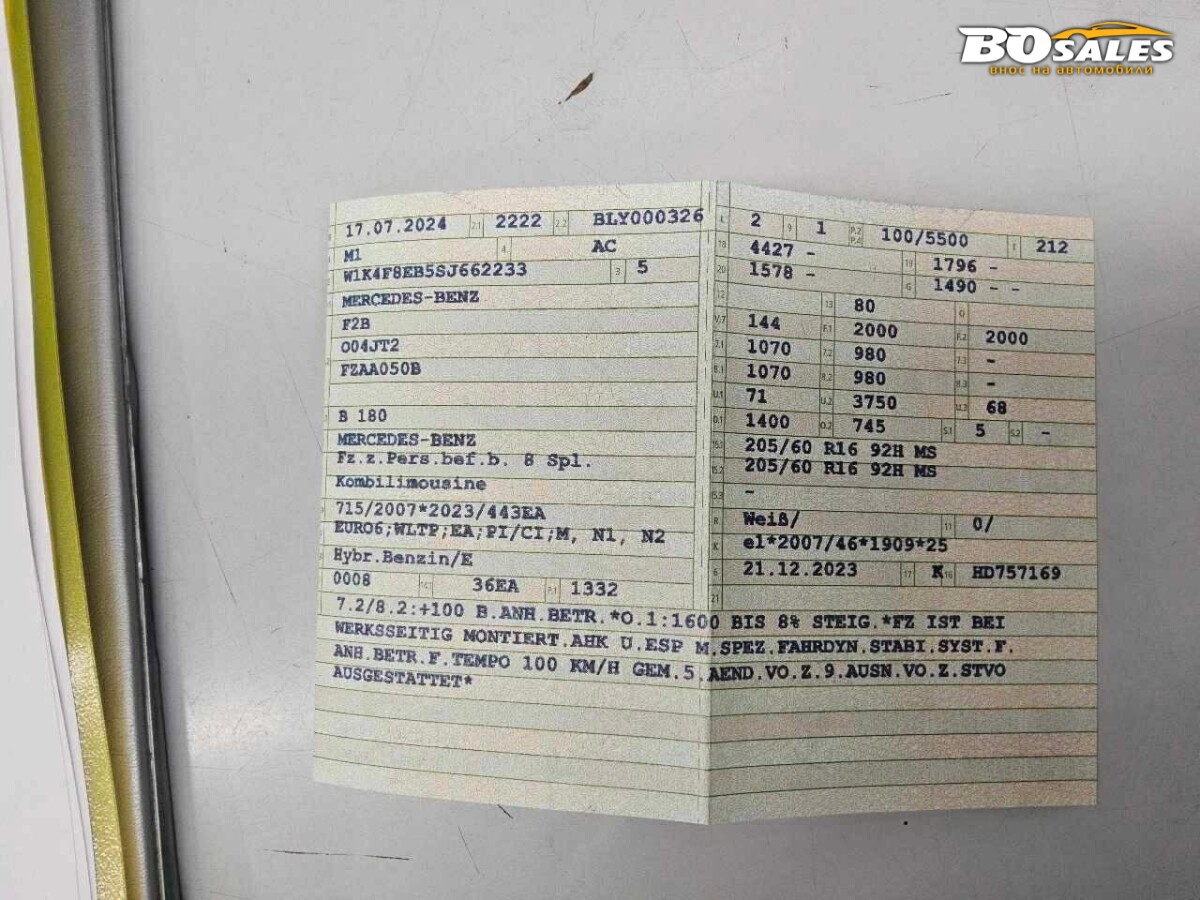 BOSALES
внос на автомобили
17.07.2024 2.1 2222 2.2 BLY000326
M1 4 AC
W1K4F8EB5SJ662233 3 5
MERCEDES-BENZ
F2B
004JT2
FZAA050B
B 180
MERCEDES-BENZ
Fz.z.Pers.bef.b. 8 Spl.
Kombilimousine
715/2007*2023/443EA
EURO6;WLTP;EA;PI/CI;M, N1, N2
Hybr.Benzin/E
0008 14.1 36EA P.1 1332
L 2 9 1 P.2 P.4 100/5500 T 212
18 4427 - 19 1796 -
20 1578 - G 1490 - -
12 13 80 Q
V.7 144 F.1 2000 F.2 2000
7.1 1070 7.2 980 7.3 -
8.1 1070 8.2 980 8.3 -
U.1 71 U.2 3750 U.3 68
O.1 1400 O.2 745 S.1 5 S.2 -
15.1 205/60 R16 92H MS
15.2 205/60 R16 92H MS
15.3 -
R Weiß/ 11 0/
K e1*2007/46*1909*25
6 21.12.2023 17 K 16 HD757169
21
7.2/8.2:+100 B.ANH.BETR.*O.1:1600 BIS 8% STEIG.*FZ IST BEI
WERKSSEITIG MONTIERT.AHK U.ESP M.SPEZ.FAHRDYN.STABI.SYST.F.
ANH.BETR.F.TEMPO 100 KM/H GEM.5.AEND.VO.Z.9.AUSN.VO.Z.STVO
AUSGESTATTET*